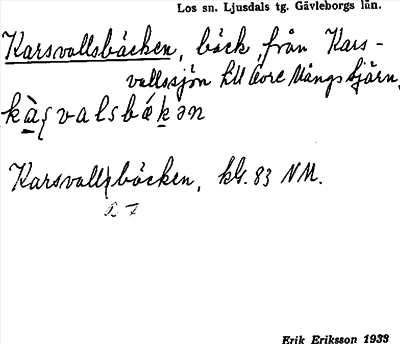 Los sn. Ljusdals tg. Gävleborgs län.
Karsvallsbäcken, bäck från Kars-
vallssjön till Övre Vångstjärn,
Karsvallsbäcken, kbl. 83 NM.
Erik Eriksson 1933